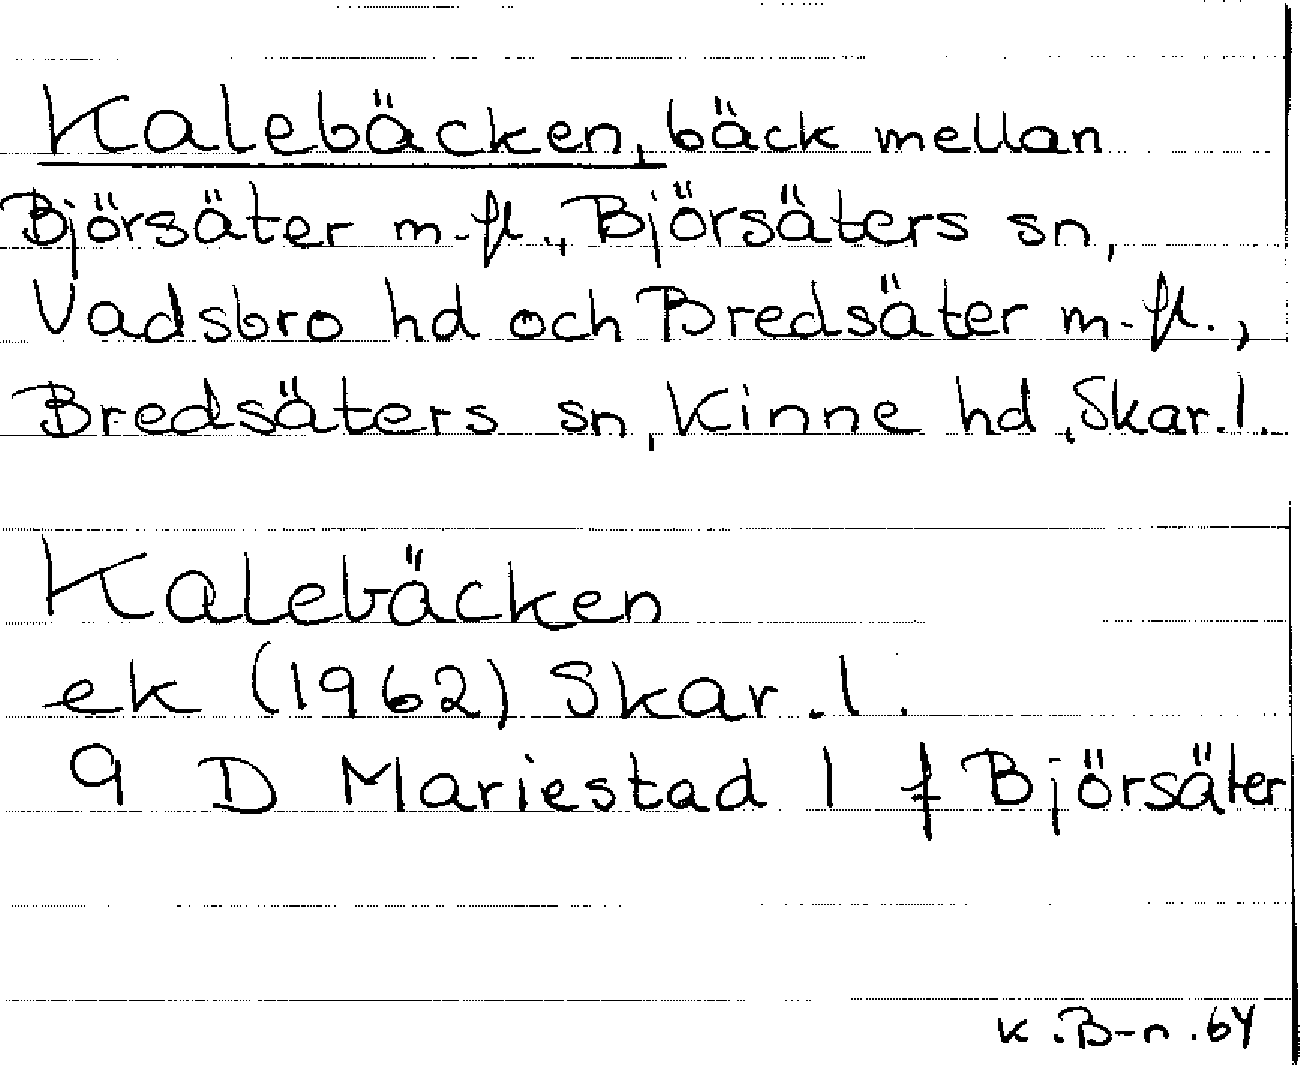 Kalebäcken, bäck mellan
Björsäter m.fl., Björsäters sn,
Vadsbro hd och Bredsäter m.fl.,
Bredsäters sn, Kinne hd, Skar.l.
Kalebäcken
ek (1962) Skar.l.
9 D Mariestad 1 f Björsäter
K.B-n.64